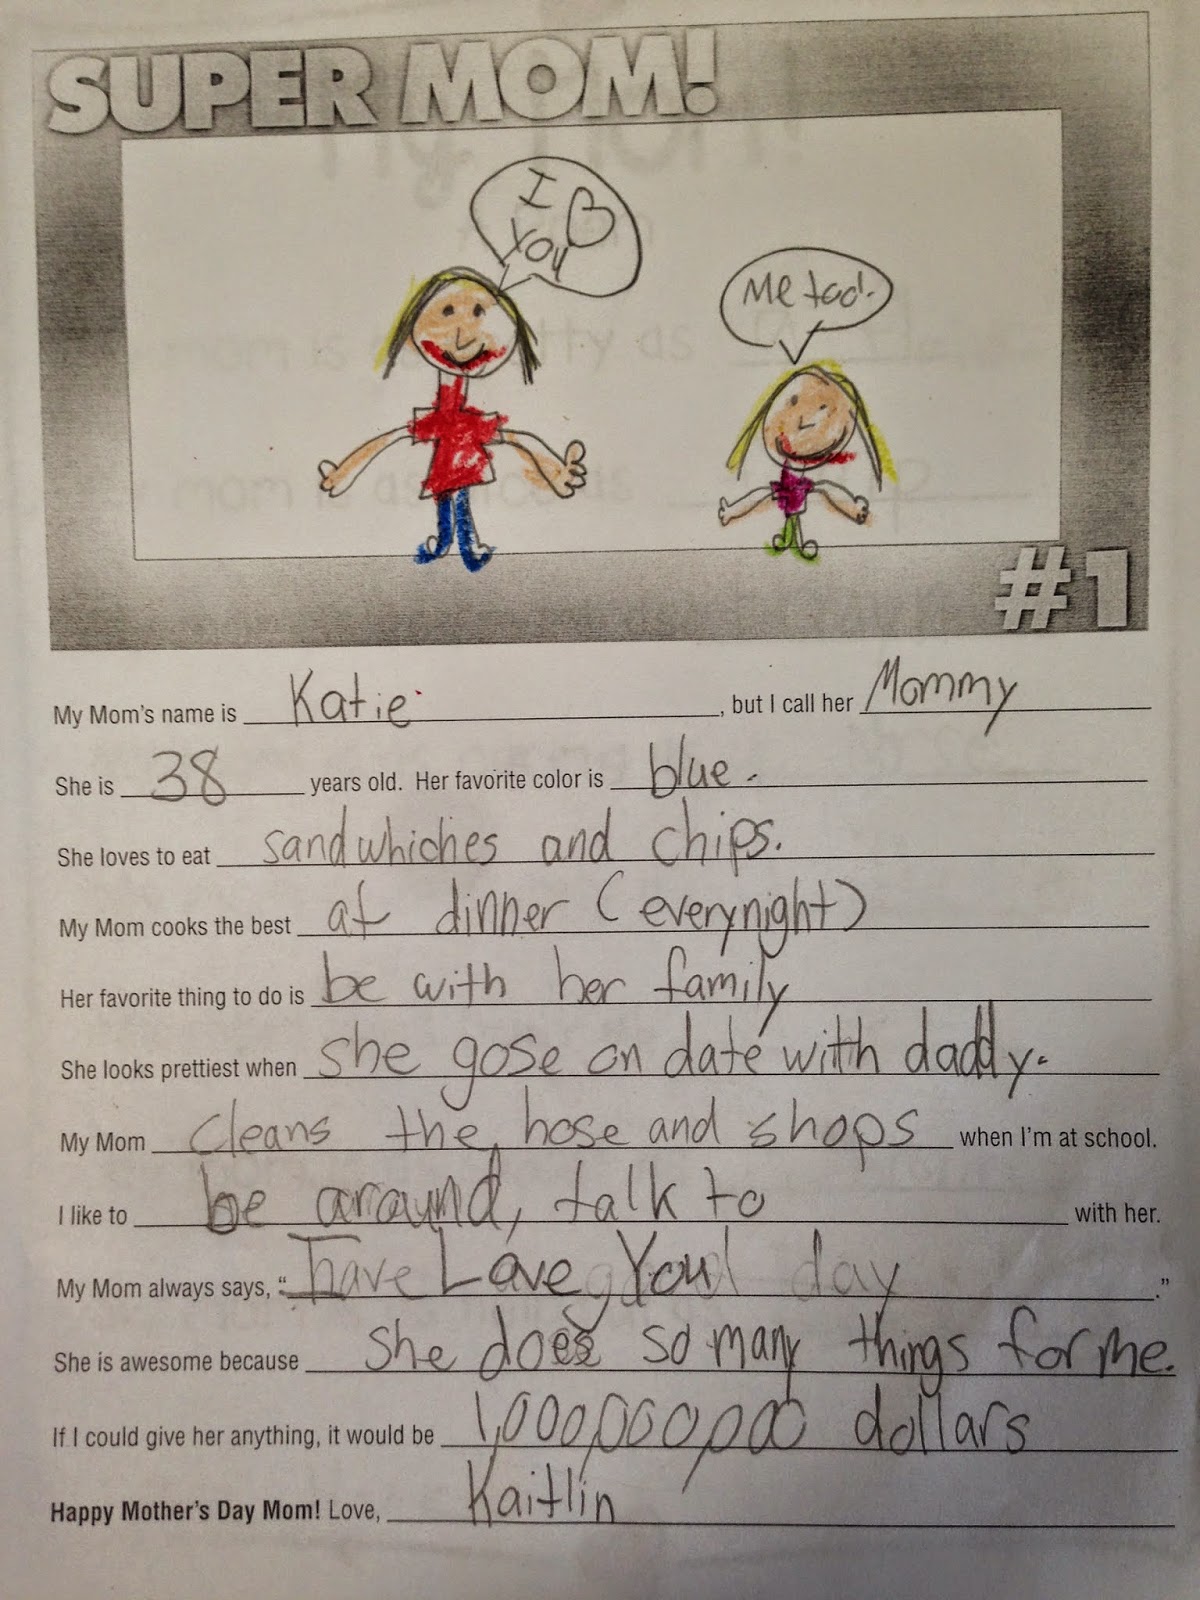 SUPER MOM!
I ♡
You
Me too!
#1
My Mom's name is Katie, but I call her Mommy
She is 38 years old. Her favorite color is blue.
She loves to eat sandwhiches and chips.
My Mom cooks the best at dinner (everynight)
Her favorite thing to do is be with her family
She looks prettiest when she gose on date with daddy.
My Mom cleans the hose and shops when I'm at school.
I like to be around, talk to with her.
My Mom always says, "I Love You."
She is awesome because she does so many things for me.
If I could give her anything, it would be 1,000,000,000 dollars
Happy Mother's Day Mom! Love, Kaitlin